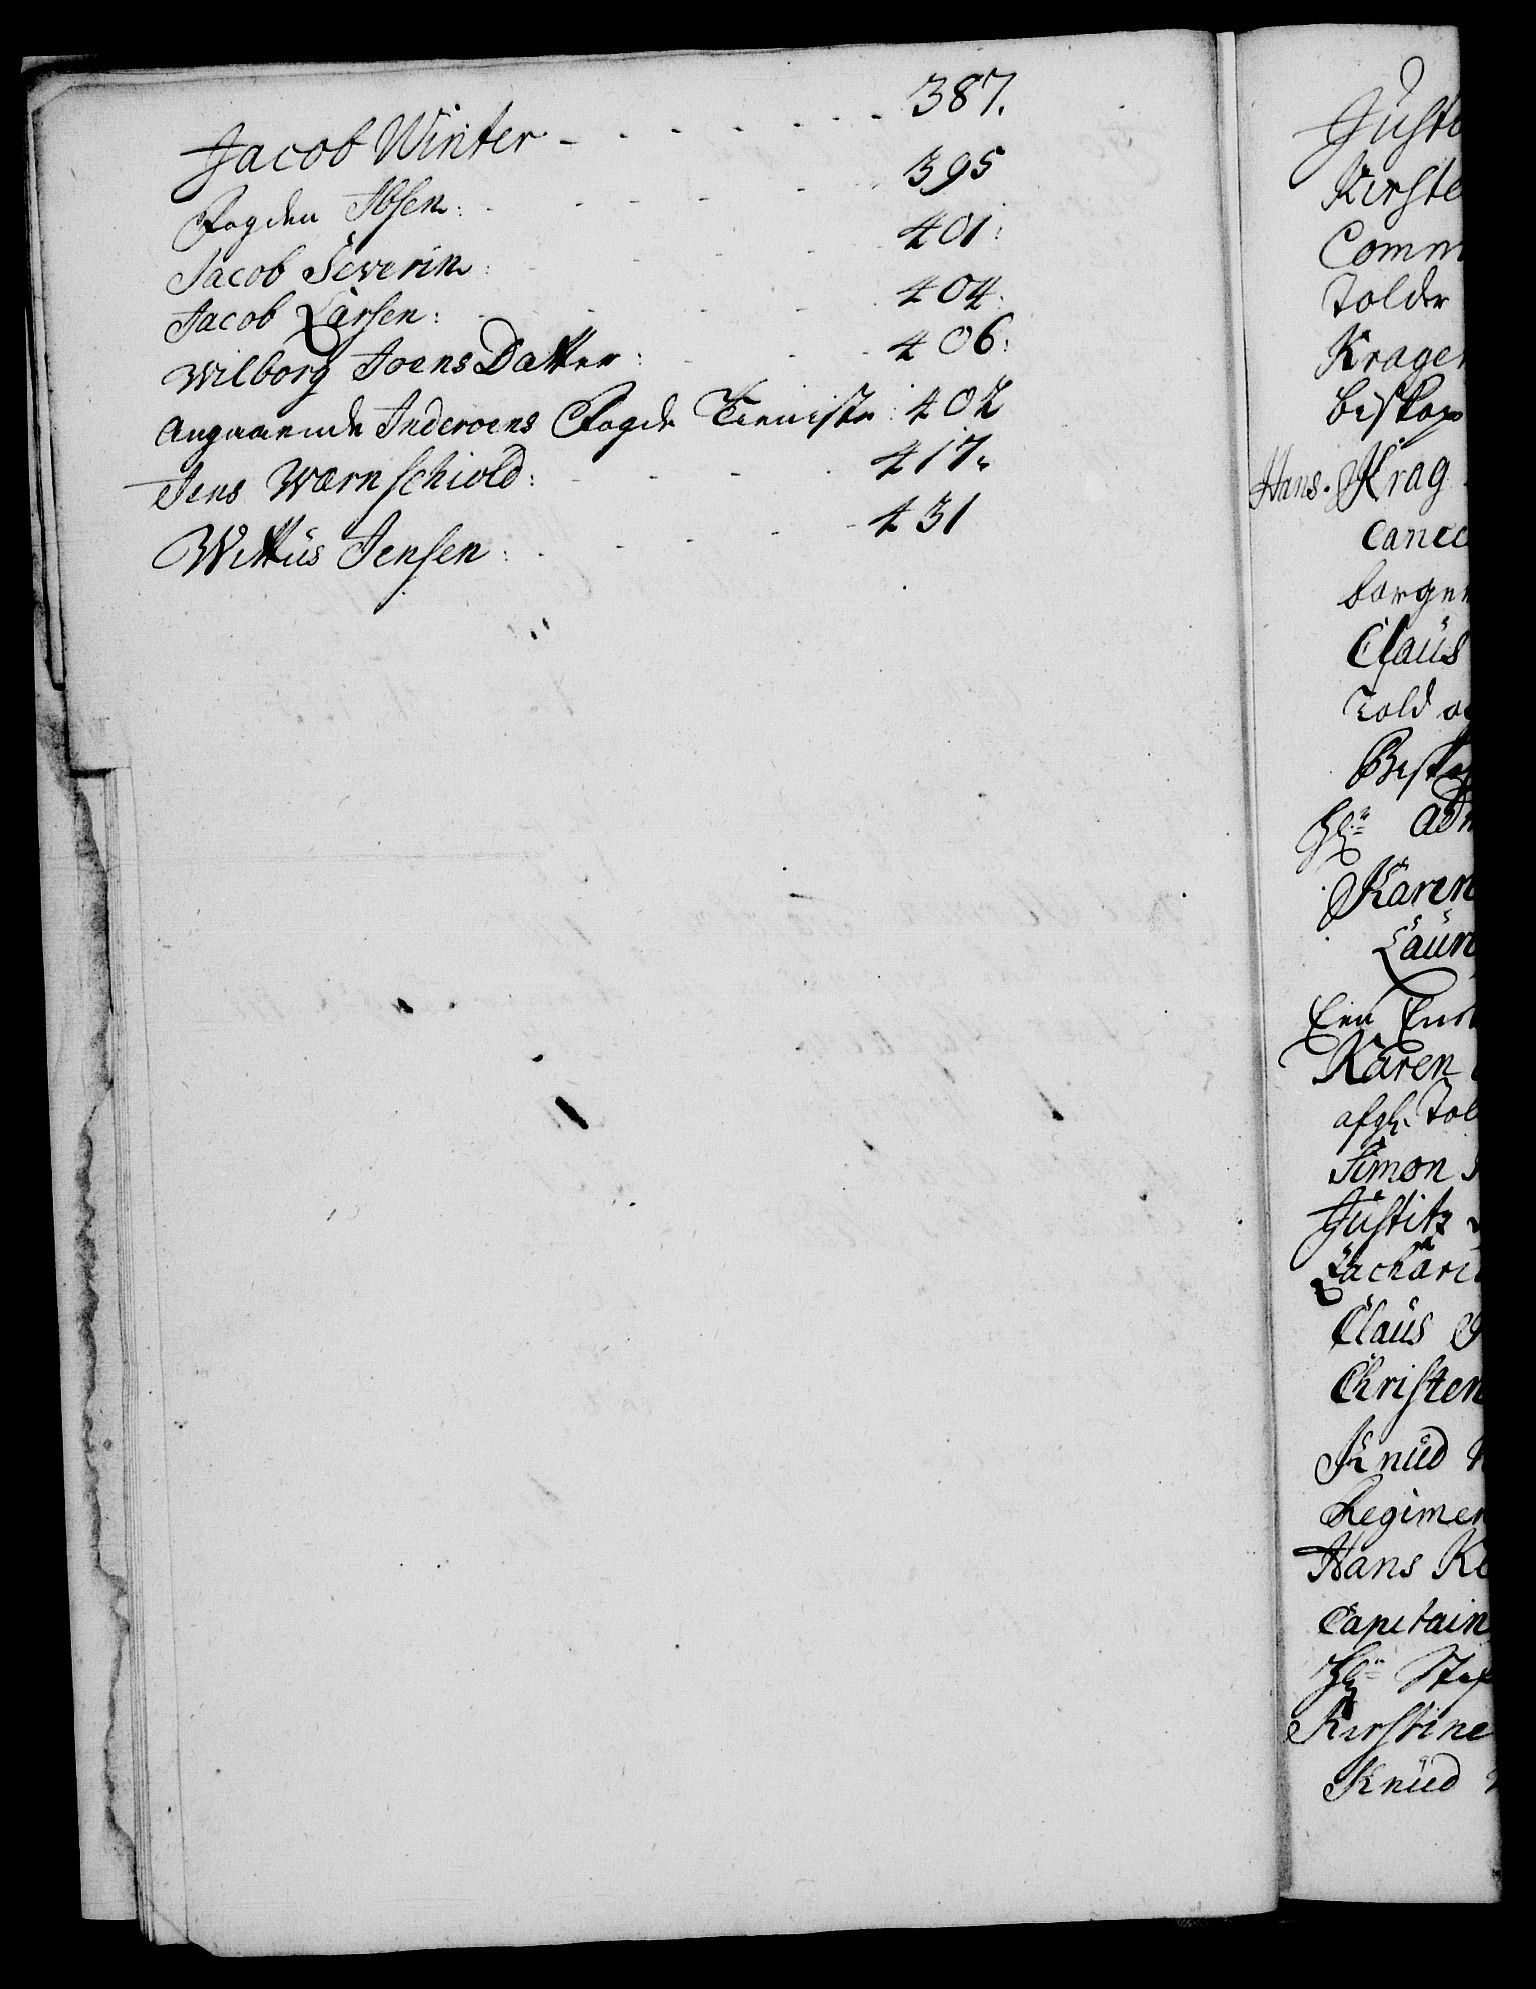 Jacob Winter - - - - - - - - 387.
Fogden Ibsen: - - - - - 395
Jacob Severin: - - - - 401:
Jacob Larsen: - - - - 404:
Wilborg Joens Datter: - - - 406:
Angaaende Inderoens Fogde Tieniste: 402
Jens Wærnschiold: - - - 417.
Wittus Jensen: - - - - 431
Justi
Kirste
Comm
Tolder
Krager
biskop
Hans Krag
Cancel
borger
Claus
Told og
Biskop
Hr: Adm
Karen
Laur
Een
Karen
afg: Tol
Simon
Justitz
Zachari
Claus
Christen
Knud
Regimen
Hans Ke
Capitain
Hr:
Kirstine
Knud